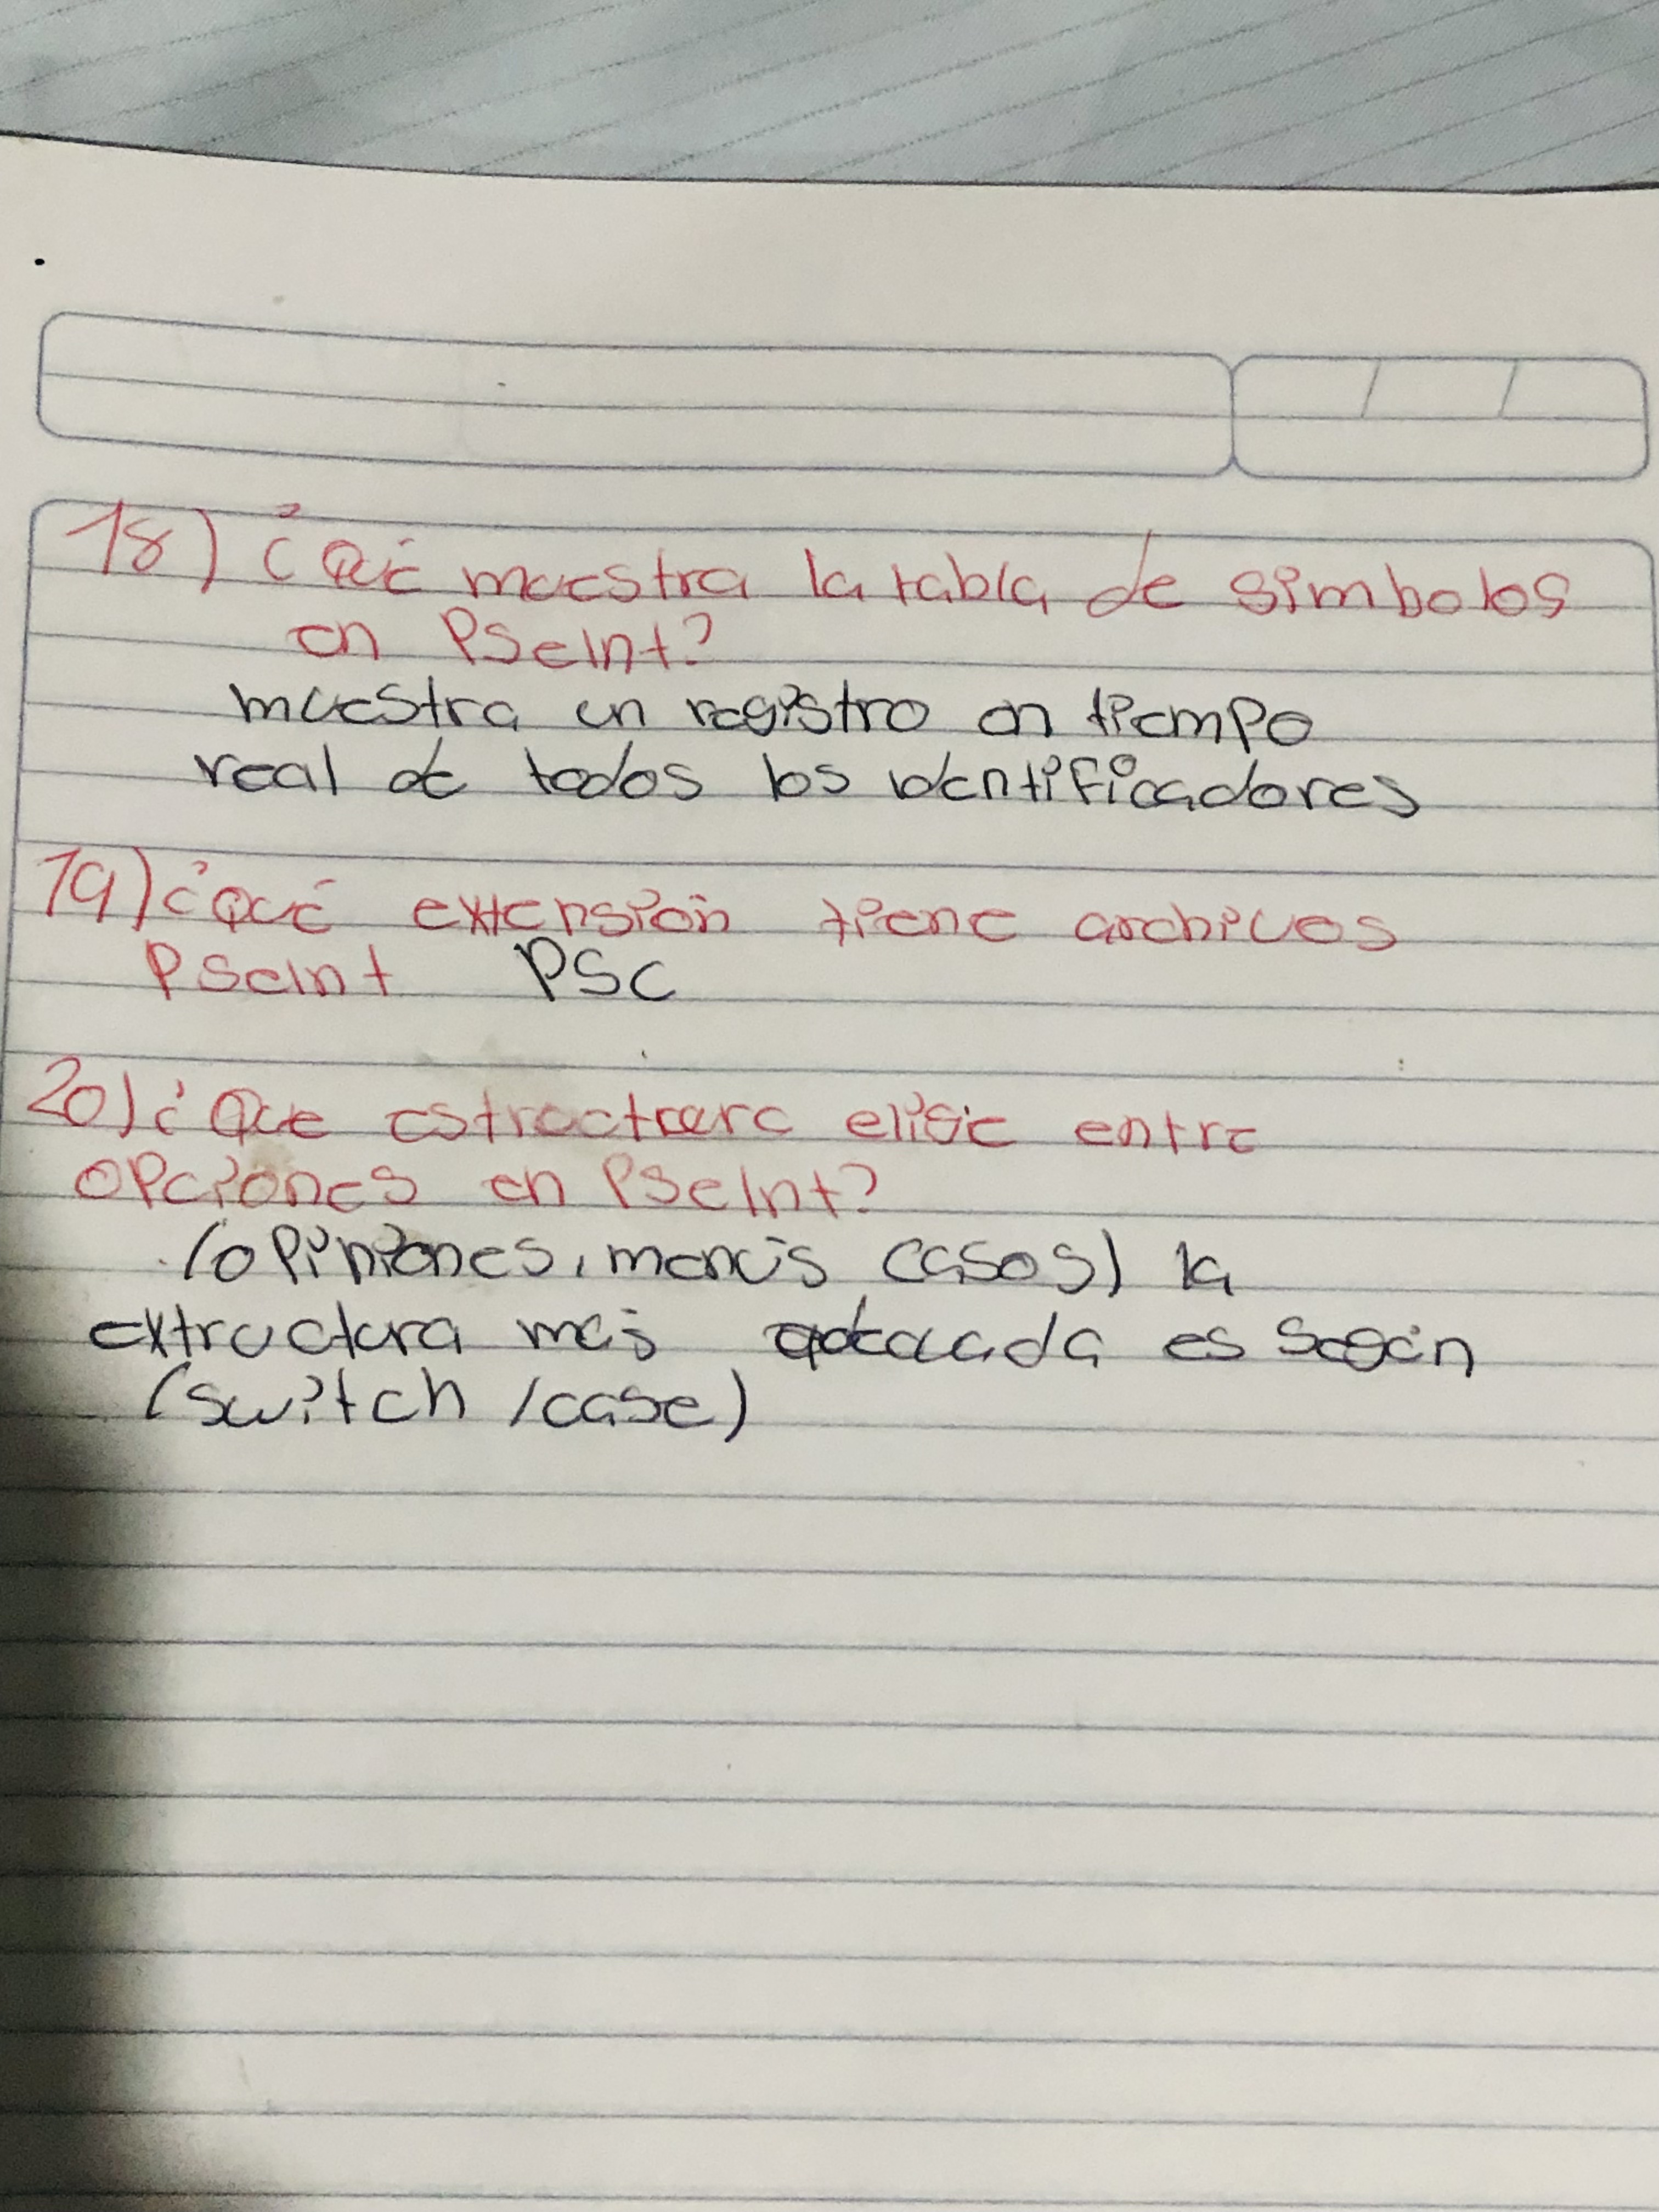 18) ¿Qué muestra la tabla de simbolos
en PSeInt?
muestra un registro en tiempo
real de todos los identificadores
19) ¿Qué extensión tiene archivos
PseInt PSC
20) ¿Que estructuera elige entre
opciones en PSeInt?
(opiniones, menús casos) la
extructura más adecuada es Según
(switch /case)